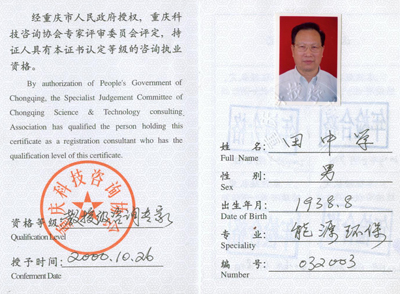 经重庆市人民政府授权，重庆科
技咨询协会专家评审委员会评定，持
证人具有本证书认定等级的咨询执业
资格。
By authorization of People's Government of
Chongqing, the Specialist Judgement Committee of
Chongqing Science & Technology consulting
Association has qualified the person holding this
certificate as a registration consultant who has the
qualification level of this certificate.
重庆科技咨询协会
资格等级: 教授级咨询专家
Qualification Level
授予时间: 2000.10.26
Conferment Date
姓 名: 田中学
Full Name
性 别: 男
Sex
出生年月: 1938.8
Date of Birth
专 业: 能源环保
Speciality
编 号: 032003
Number